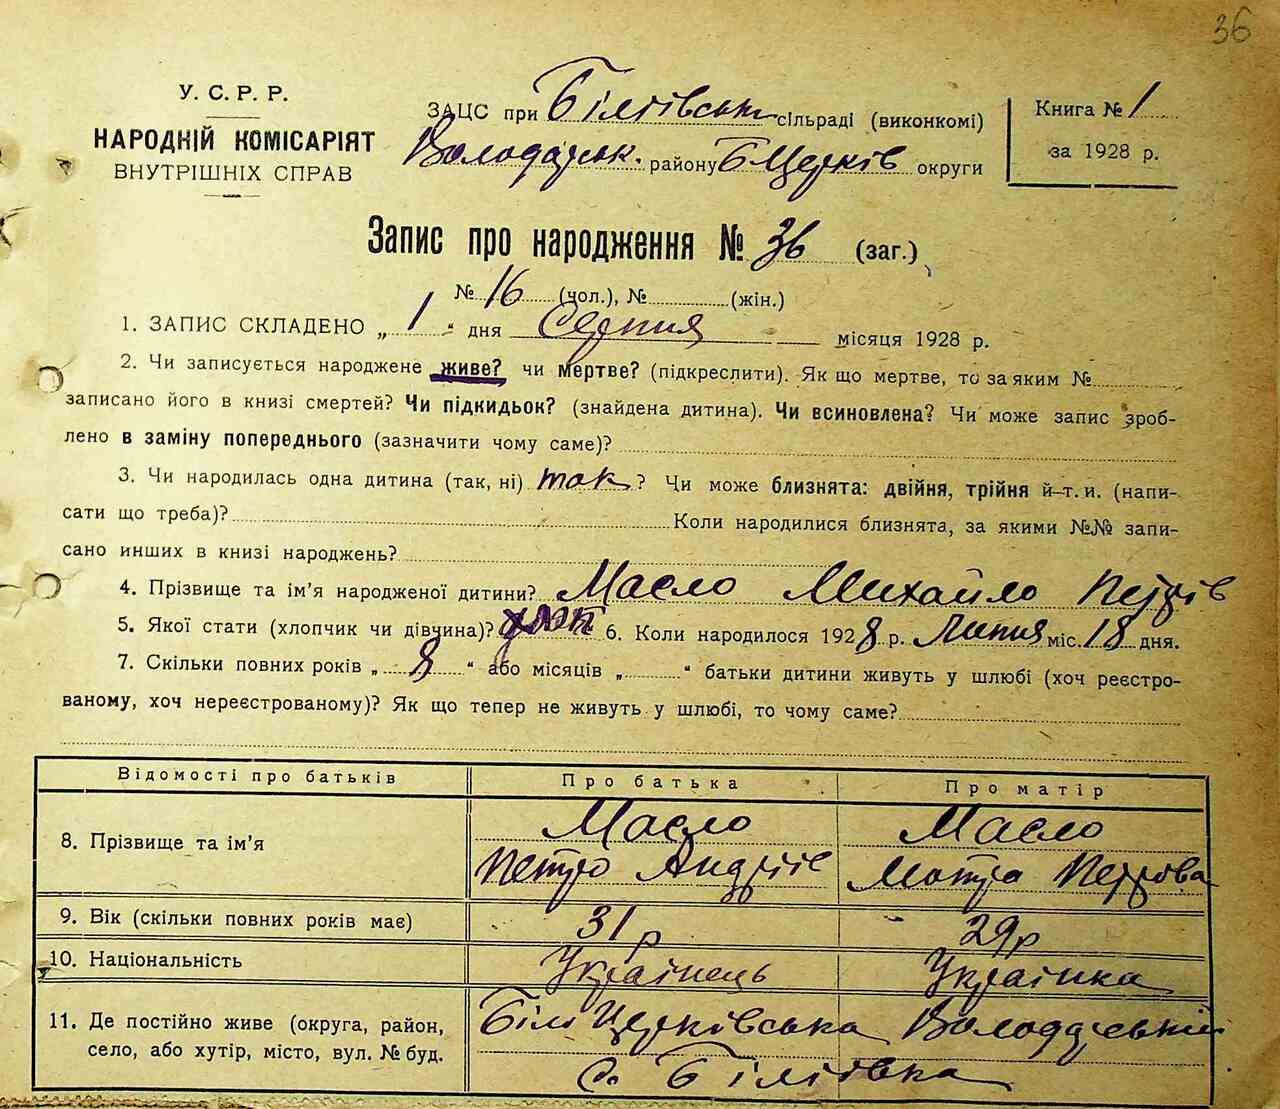 36
У. С. Р. Р.
НАРОДНІЙ КОМІСАРІЯТ
ВНУТРІШНІХ СПРАВ
ЗАЦС при Біліївськ сільраді (виконкомі)
Володарськ. району Б Церків округи
Книга № 1
за 1928 р.
Запис про народження № 36 (заг.)
№ 16 (чол.), № (жін.)
1. ЗАПИС СКЛАДЕНО „ 1 “ дня Серпня місяця 1928 р.
2. Чи записується народжене живе? чи мертве? (підкреслити). Як що мертве, то за яким №
записано його в книзі смертей? Чи підкидьок? (знайдена дитина). Чи всиновлена? Чи може запис зроб-
лено в заміну попереднього (зазначити чому саме)?
3. Чи народилась одна дитина (так, ні) так ? Чи може близнята: двійня, трійня й-т. и. (напи-
сати що треба)? Коли народилися близнята, за якими №№ запи-
сано инших в книзі народжень?
4. Прізвище та ім'я народженої дитини? Масло Михайло Петрів
5. Якої стати (хлопчик чи дівчина)? хлоп 6. Коли народилося 1928 р. Липня міс. 18 дня.
7. Скільки повних років „ 8 “ або місяців „ “ батьки дитини живуть у шлюбі (хоч реєстро-
ваному, хоч нереєстрованому)? Як що тепер не живуть у шлюбі, то чому саме?
Відомості про батьків Про батька Про матір
8. Прізвище та ім'я
Масло Масло
Петро Андріїв Мотря Петрова
9. Вік (скільки повних років має) 31 р 29 р
10. Національність Українець Українка
11. Де постійно живе (округа, район,
село, або хутір, місто, вул. № буд.
Біло Церківська
с. Біліївка